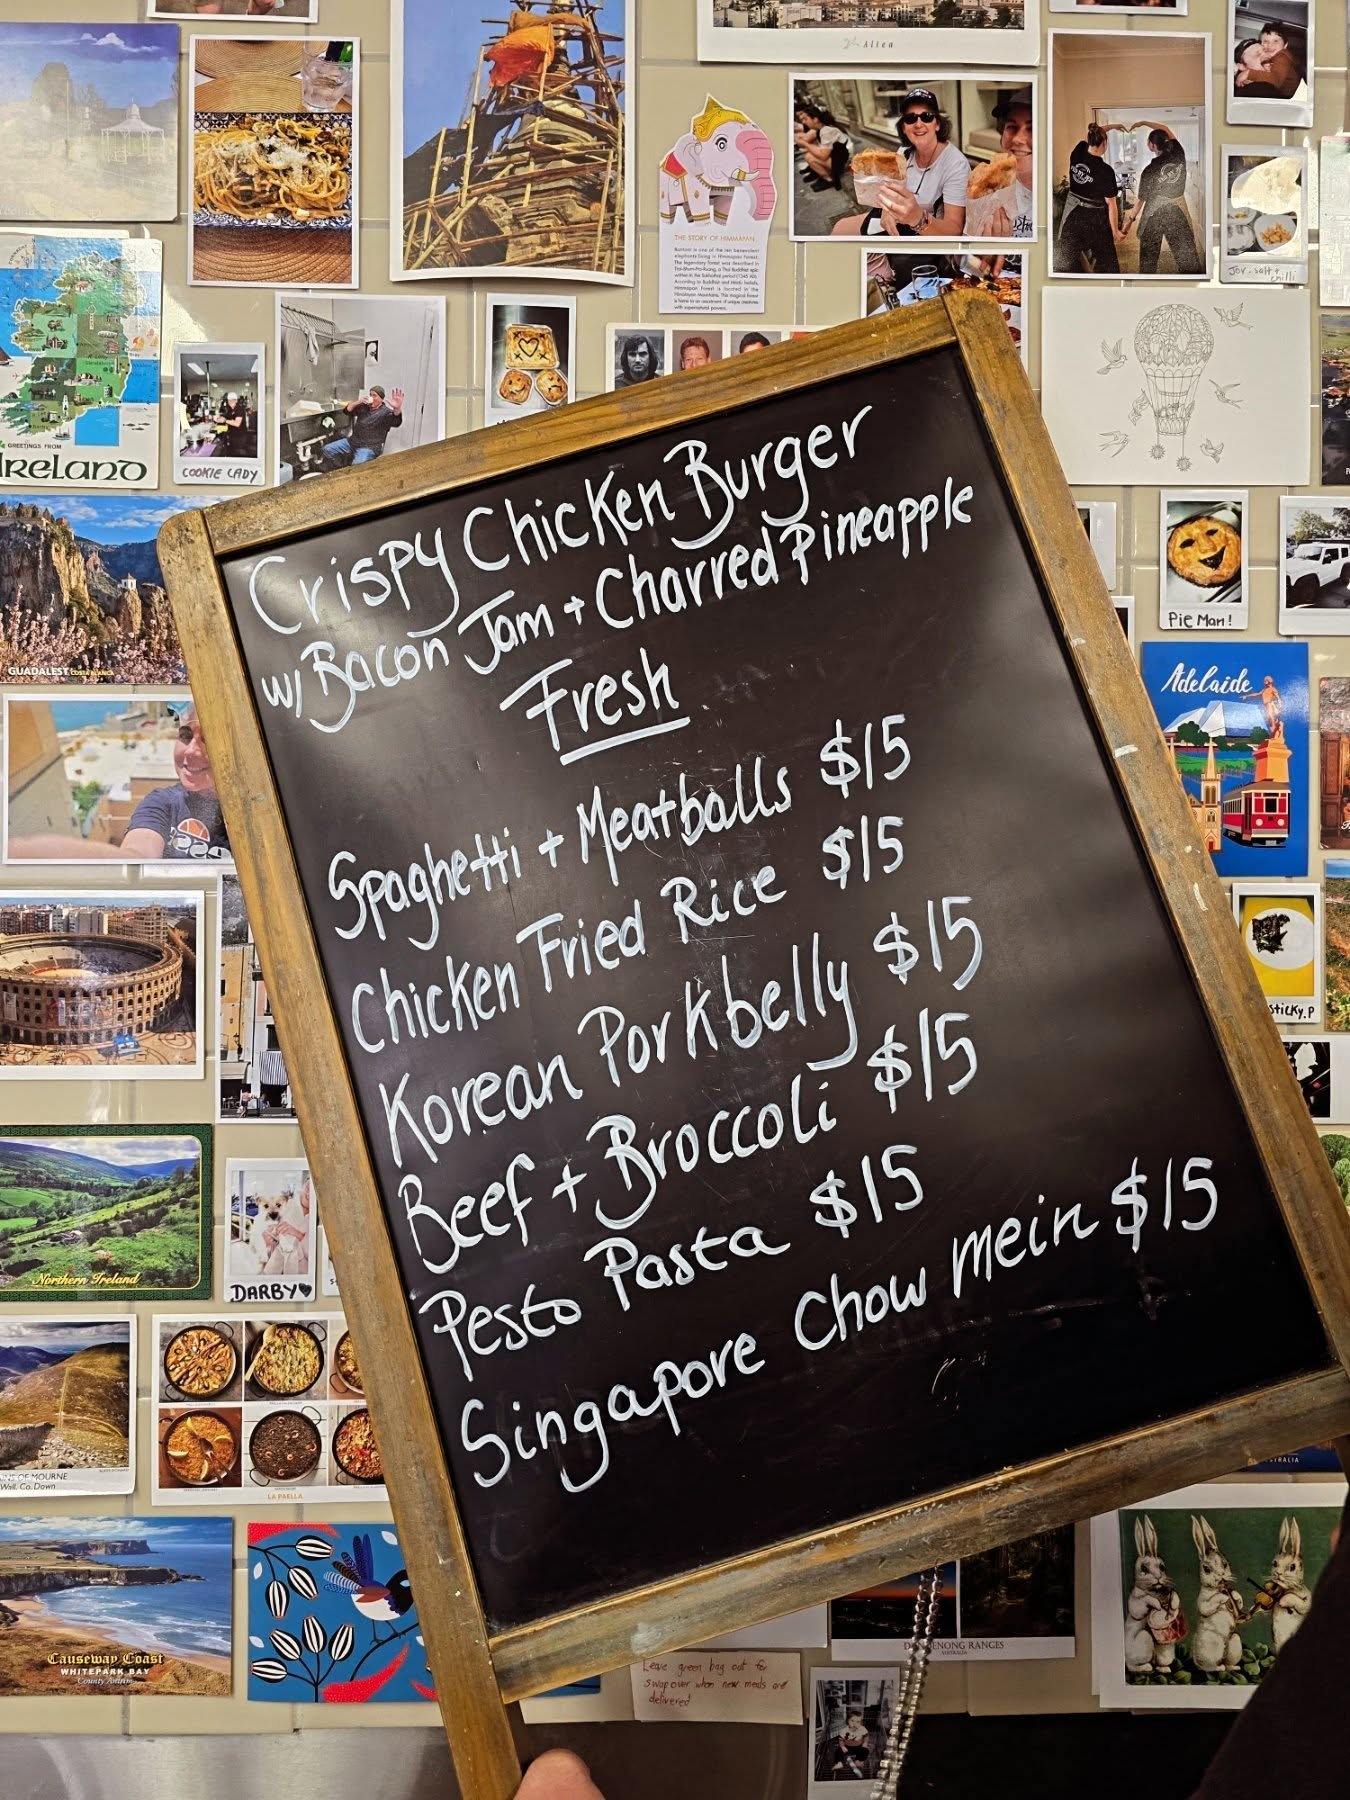 Altea
THE STORY OF HIMMAPAN
Jor. salt + chilli
GREETINGS FROM
IRELAND
COOKIE LADY
Crispy Chicken Burger
w/ Bacon Jam + Charred Pineapple
Fresh
Spaghetti + Meatballs $15
Chicken Fried Rice $15
Korean Porkbelly $15
Beef + Broccoli $15
Pesto Pasta $15
Singapore Chow mein $15
Pie Man!
GUADALEST COSTA BLANCA
Adelaide
sticky.P
Northern Ireland
DARBY
OF MOURNE
Wall, Co. Down
LA PAELLA
AUSTRALIA
Causeway Coast
WHITEPARK BAY
County Antrim
DANDENONG RANGES
AUSTRALIA
Leave green bag out for
swapover when new meals are
delivered